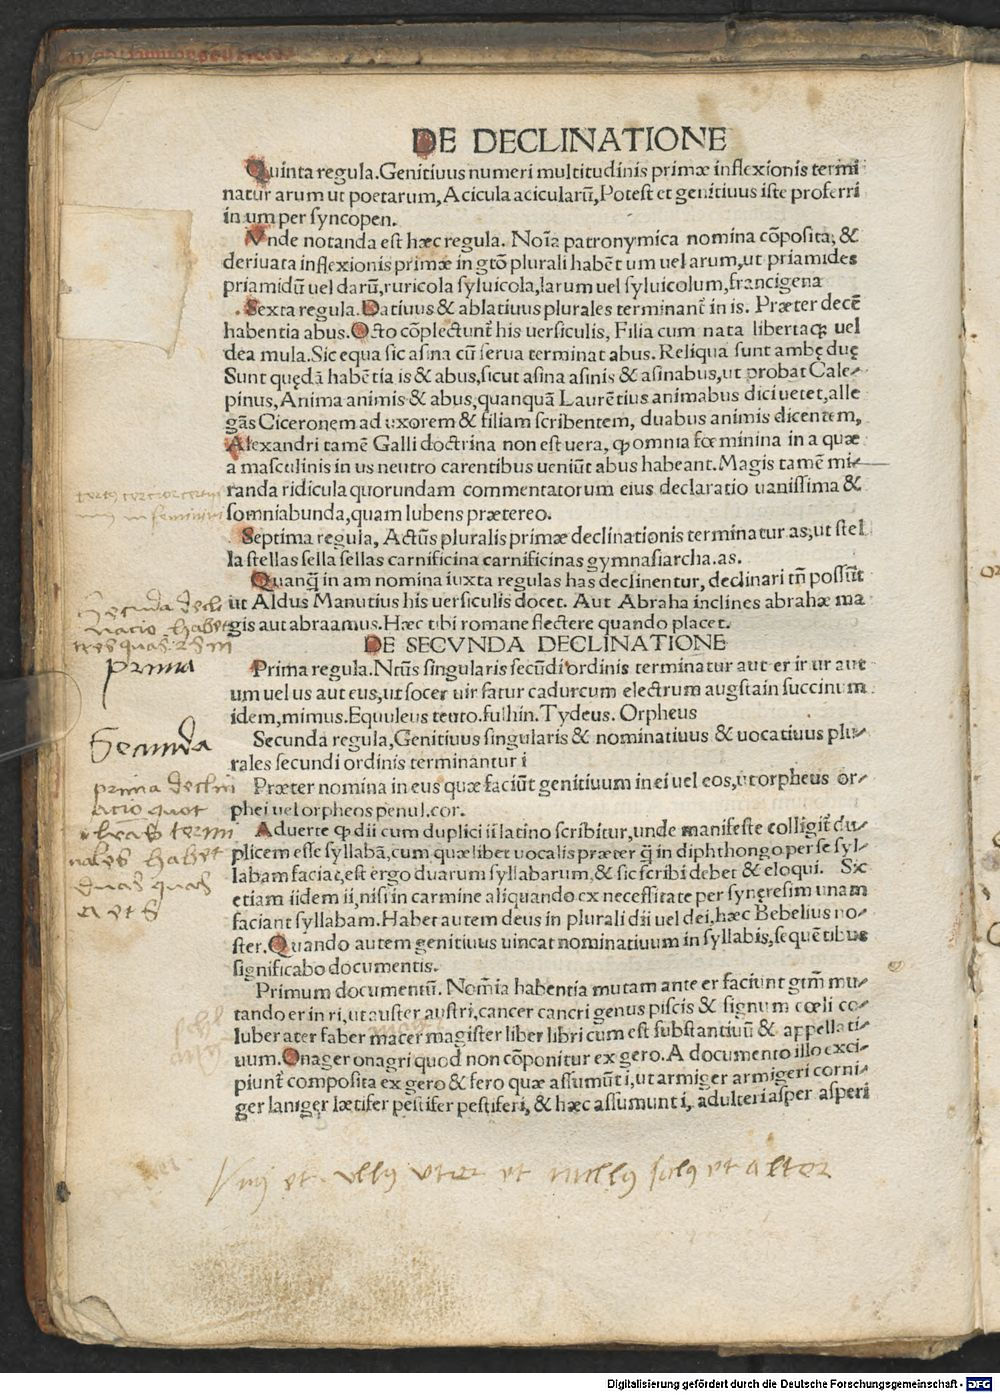 DE DECLINATIONE
Quinta regula. Genitiuus numeri multitudinis primæ inflexionis termi
natur arum ut poetarum, Acicula acicularū, Potest et genitiuus iste proferri
in um per syncopen.
Vnde notanda est hæc regula. Noīa patronymica nomina cōposita, &
deriuata inflexionis primæ in gtō plurali habēt um uel arum, ut priamides
priamidū uel darū, ruricola syluicola, larum uel syluicolum, francigena
Sexta regula. Datiuus & ablatiuus plurales terminant̄ in is. Præter decē
habentia abus. Octo cōplectunt̄ his uersiculis, Filia cum nata libertaqꝫ uel
dea mula. Sic equa sic asina cū serua terminat abus. Reliqua sunt ambę duę
Sunt quędā habētia is & abus, sicut asina asinis & asinabus, ut probat Cale⸗
pinus, Anima animis & abus, quanquā Laurētius animabus dici uetet, alle
gās Ciceronem ad uxorem & filiam scribentem, duabus animis dicentem,
Alexandri tamē Galli doctrina non est uera, ꝙ omnia fœminina in a quæ
a masculinis in us neutro carentibus ueniūt abus habeant. Magis tamē mi⸗
randa ridicula quorundam commentatorum eius declaratio uanissima &
somniabunda, quam lubens prætereo.
Septima regula, Actūs pluralis primæ declinationis terminatur as, ut stel
la stellas sella sellas carnificina carnificinas gymnasiarcha.as.
Quanq̄ in am nomina iuxta regulas has declinentur, declinari tn̄ possūt
ut Aldus Manutius his uersiculis docet. Aut Abraha inclines abrahæ ma
gis aut abraamus. Hæc tibi romane flectere quando placet.
Secunda decli
natio habet
tres quas: r s m
prima
DE SECVNDA DECLINATIONE
Prima regula. Ntūs singularis secūdi ordinis terminatur aut er ir ur aut
um uel us aut eus, ut socer uir satur cadurcum electrum augstain succinum
idem, mimus. Equuleus teuto. fulhin. Tydeus. Orpheus
Secunda
Secunda regula, Genitiuus singularis & nominatiuus & uocatiuus plu⸗
rales secundi ordinis terminantur i
Præter nomina in eus quæ faciūt genitiuum in ei uel eos, ut orpheus or⸗
phei uel orpheos penul.cor.
prima declin
atio quot
l̄ras termi
nales habet
duas quas
a et s
Aduerte ꝙ dii cum duplici ii latino scribitur, unde manifeste colligit̄ du⸗
plicem esse syllabā, cum quælibet uocalis præter q̄ in diphthongo per se syl⸗
labam faciat, est ergo duarum syllabarum, & sic scribi debet & eloqui. Sic
etiam iidem ii, nisi in carmine aliquando ex necessitate per synęresim unam
faciant syllabam. Habet autem deus in plurali dii uel dei, hæc Bebelius no⸗
ster. Quando autem genitiuus uincat nominatiuum in syllabis, sequētibus
significabo documentis.
Primum documentū. Nom̄ia habentia mutam ante er faciunt gtm̄ mu⸗
tando er in ri, ut auster austri, cancer cancri genus piscis & signum cœli co⸗
luber ater faber macer magister liber libri cum est substantiuū & appellati⸗
uum. Onager onagri quod non cōponitur ex gero. A documento illo exci⸗
piunt̄ composita ex gero & fero quæ assumūt i, ut armiger armigeri corni⸗
ger laniger lætifer pestifer pestiferi, & hæc assumunt i, adulteri asper asperi
et ullus uter et nullus solus et alter
Digitalisierung gefördert durch die Deutsche Forschungsgemeinschaft - DFG